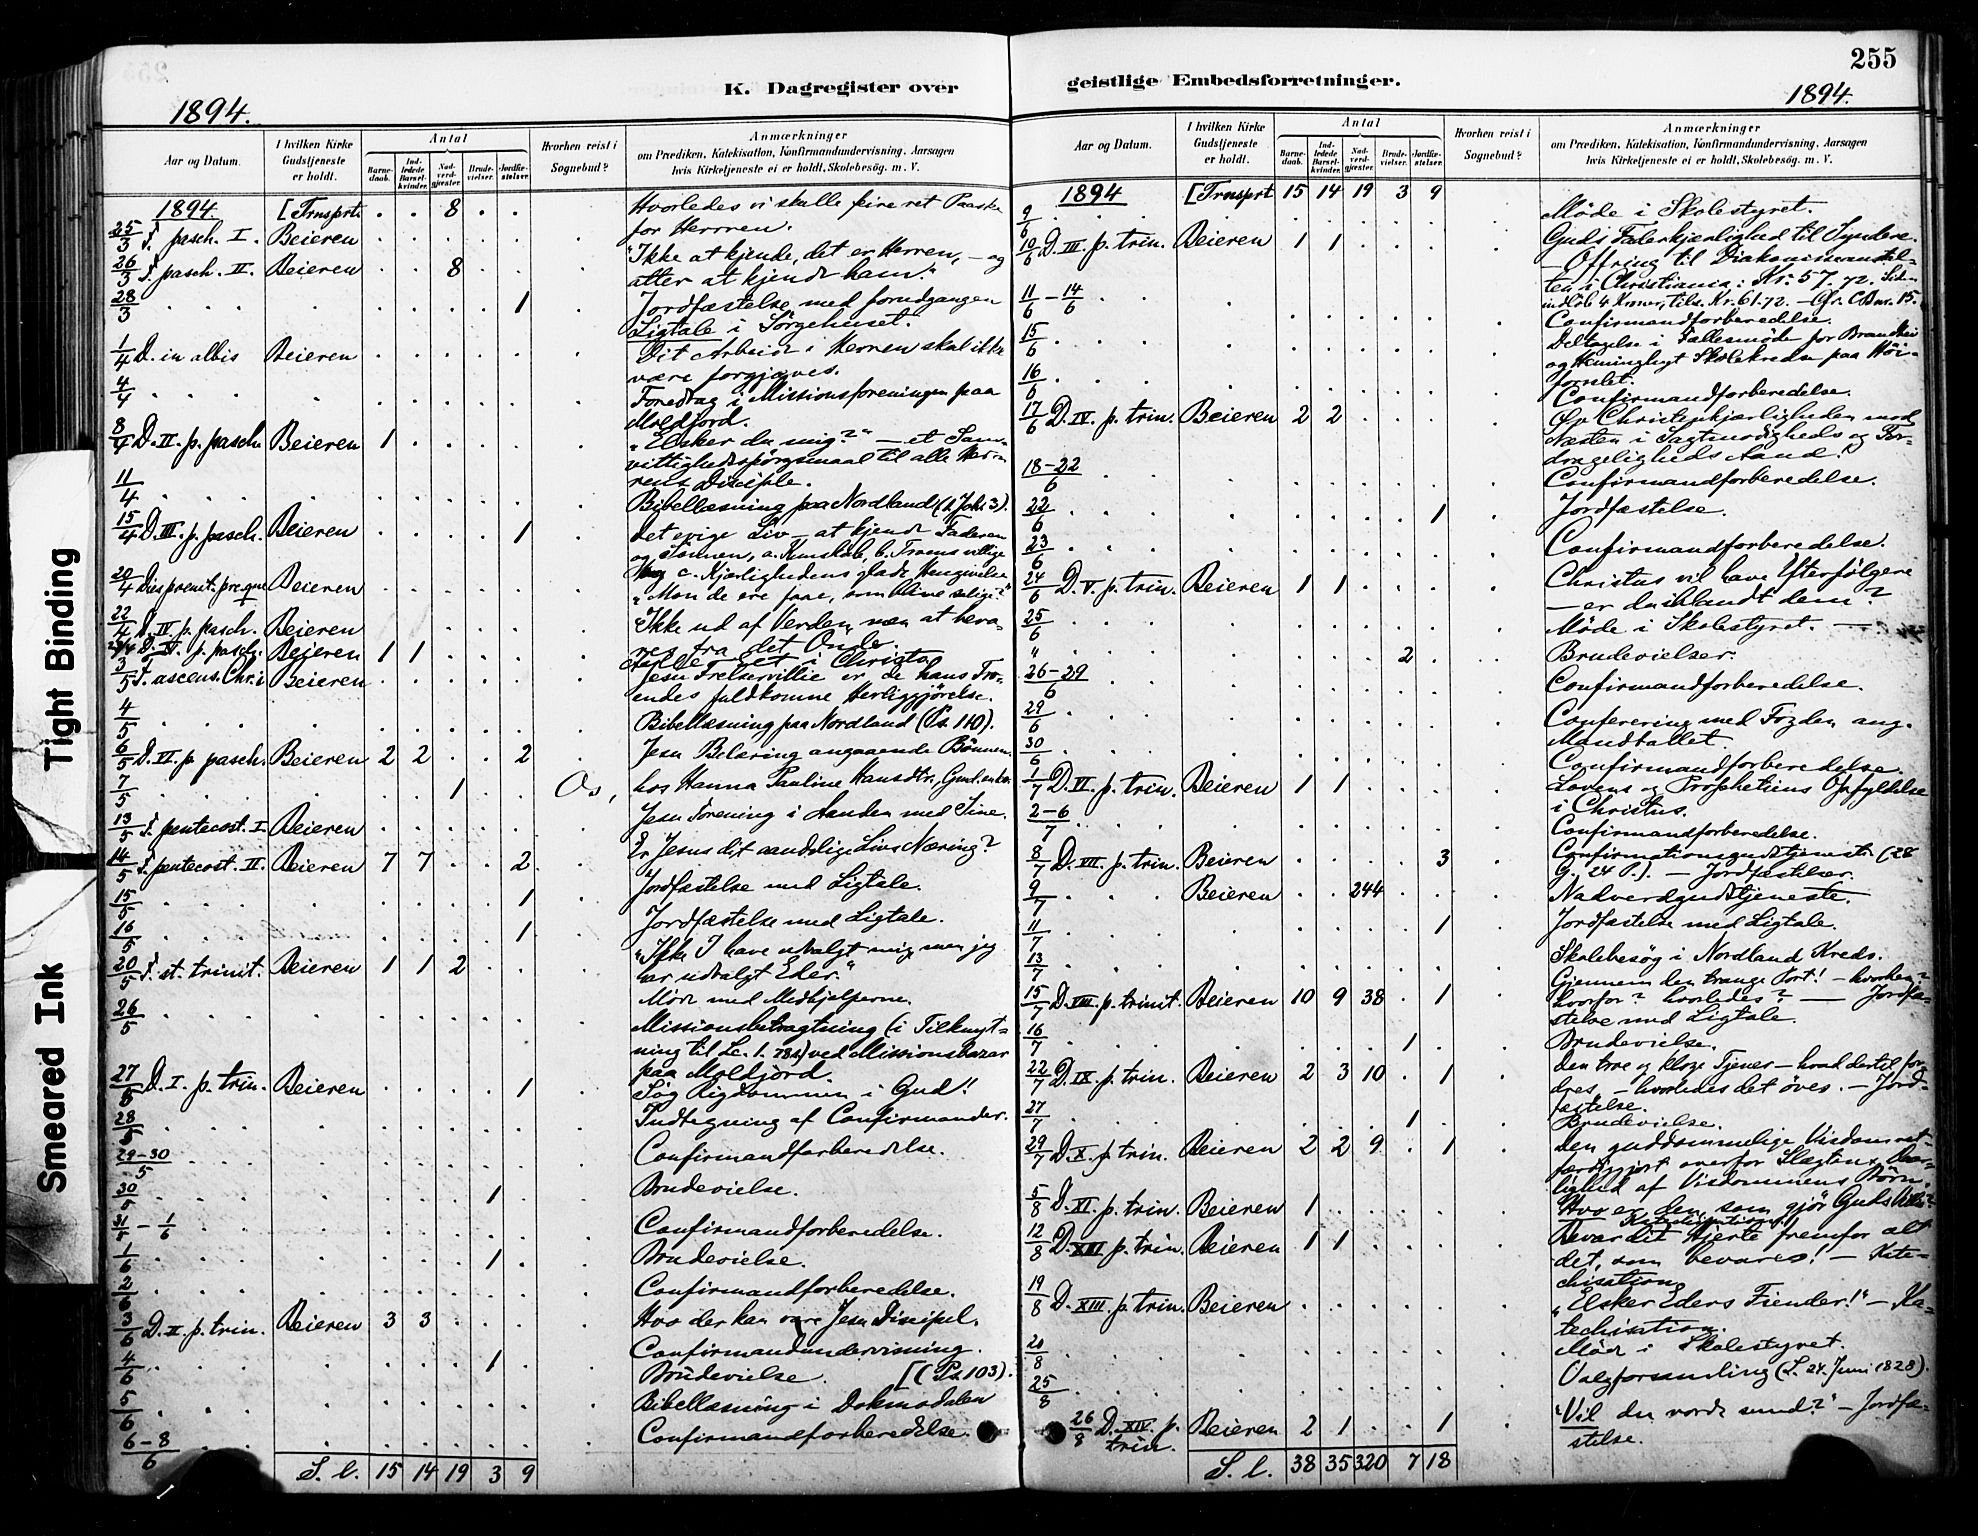 255
K. Dagregister over
geistlige Embedsforretninger.
1894.
1894.
Aar og Datum.
I hvilken Kirke Gudstjeneste er holdt.
Antal
Barnedaab.
Indledede Barselkvinder.
Nadverdgjester
Brudevielser.
Jordfæstelser.
Hvorhen reist i Sognebud?
Anmærkninger
om Prædiken, Katekisation, Konfirmandundervisning, Aarsagen
hvis Kirketjeneste ei er holdt, Skolebesög m. V.
1894. [Trnsprt. . . 8 . . Hvorledes vi skulle feire ret Paaske
25/3 F. pasch. I. Beieren for Herren.
26/3 F. pasch. II. Beieren . . 8 "Ikke at kjende, det er Herren, - og
atter at kjende ham."
28/3 1 Jordfæstelse med forudgangen
Ligtale i Sörgehuset.
1/4 D. in albis Beieren Dit Arbeide i Herren skal ikke
være forgjæves.
4/4 Foredrag i Missionsforeningen paa
Moldjord.
8/4 D. II. p. pasch. Beieren 1 "Elsker du mig?" - et Sam-
vittighedsspörgsmaal til alle Her-
rens Disciple.
11/4 Bibellæsning paa Nordland (1. Joh. 3).
15/4 D. III. p. pasch. Beieren 1 det evige Liv - at kjende Faderen
og Sönnen, a. Kundskab, b. Troens villige
c. Kjærlighedens glade Hengivelse
20/4 Dies poenit. preq. Beieren "Mon de ere faae, som blive salige?"
22/4 D. IV. p. pasch. Beieren "Ikke ud af Verden, men at beva-
res fra det Onde.
29/4 D. V. p. pasch. Beieren 1 1 i Christo
3/5 F. ascens. Chri Beieren Jesu Frelservillie er de hans Tro-
endes fuldkomne Herliggjörelse.
4/5 Bibellæsning paa Nordland (Ps. 110).
6/5 D. VI. p. pasch. Beieren 2 2 . . 2 Jesu Belæring angaaende Bönnen.
7/5 1 Os, hos Hanna Pauline Hansdtr,
13/5 F. pentecost. I. Beieren Jesu Forening i Aanden med Sine.
14/5 F. pentecost. II. Beieren 7 7 . . 2 Er Jesus dit aandelige Livs Næring?
15/5 1 Jordfæstelse med Ligtale.
16/5 1 Jordfæstelse med Ligtale.
20/5 F. st. trinit. Beieren 1 1 2 "Ikke I have udvalgt mig, men jeg
har udvalgt Eder."
26/5 Möde med Medhjelperne.
Missionsbetragtning (i Tilknyt-
ning til Lc. 1. 78f.) ved Missionsbazar
paa Moldjord.
27/5 D. I. p. trin. Beieren 1 Søg Rigdommen i Gud!
28/5 Indtegning af Confirmander.
29-30/5 Confirmandforberedelse.
30/5 1 Brudevielse.
31/5 - 1/6 Confirmandforberedelse.
1/6 1 Brudevielse.
2/6 Confirmandforberedelse.
3/6 D. II. p. trin. Beieren 3 3 Hvo der kan være Jesu Discipel.
Confirmandundervisning.
4/6 1 Brudevielse. [(Ps. 103).
5/6 Bibellæsning i Dokmodalen
6-8/6 Confirmandforberedelse.
S. l. 15 14 19 3 9
Aar og Datum.
I hvilken Kirke Gudstjeneste er holdt.
Antal
Barnedaab.
Indledede Barselkvinder.
Nadverdgjester.
Brudevielser.
Jordfæstelser.
Hvorhen reist i Sognebud?
Anmærkninger
om Prædiken, Katekisation, Konfirmandundervisning, Aarsagen
hvis Kirketjeneste ei er holdt, Skolebesög. m. V.
1894 [Trnsprt 15 14 19 3 9
9/6 Möde i Skolestyret.
10/6 D. III. p. trin. Beieren 1 1 Guds Faderkjærlighed til Syndere.
- Offring til Diakonisseanstal-
ten i Christiania: Kr. 57.72. Sid-
indløb 4 Kroner, tils. Kr. 61.72.
11/6 - 14/6 Confirmandforberedelse.
15/6 Deltagelse i Fællesmöde for
og Skolekredse paa Höi-
forslet.
16/6 Confirmandforberedelse.
17/6 D. IV. p. trin. Beieren 2 2 Öv Christenkjærligheden mod
Næsten i Sagtmodigheds og For-
drageligheds Aand!
18-22/6 Confirmandforberedelse.
22/6 1 Jordfæstelse.
23/6 Confirmandforberedelse.
24/6 D. V. p. trin. Beieren 1 1 Christus vil have Efterfölgere
- er du iblandt dem?
25/6 Möde i Skolestyret. -
" 2 Brudevielser.
26-29/6 Confirmandforberedelse.
29/6 Conferering med Fogden ang.
Mandtallet.
30/6 Confirmandforberedelse.
1/7 D. VI. p. trin. Beieren 1 1 Lovens og Prophetiens Opfyldelse
i Christus.
2-6/7 Confirmandforberedelse.
8/7 D. VII. p. trin. Beieren 3 Confirmationsgudstjeneste (28
G., 24 P.). - Jordfæstelser.
9/7 Beieren 244 Nadverdgudstjeneste.
11/7 1 Jordfæstelse med Ligtale.
13/7 Skolebesög i Nordland Kreds.
15/7 D. VIII. p. trinit. Beieren 10 9 38 . 1 Gjennem den trange Port! - hvorhen?
hvorfor? hvorledes? - Jordfæ-
stelse med Ligtale.
16/7 1 Brudevielse.
22/7 D. IX. p. trin. Beieren 2 3 10 . 1 Den tro og kloge Tjener - hvad dertil for-
dres, - hvorledes det öves. - Jord-
fæstelse.
27/7 1 Brudevielse.
29/7 D. X. p. trin. Beieren 2 2 9 . 1 Den guddommelige Visdom ret-
færdiggjort overfor Slægtens
lighed af Visdommens Börn.
5/8 D. XI. p. trin. Beieren 1 Hvo er den, som gjör Guds Villie?
Katechisation.
12/8 D. XII p. trin. Beieren 1 1 Bevar dit Hjerte fremfor alt
det, som bevares! - Kate-
chisation
19/8 D. XIII. p. trin. Beieren "Elsker Eders Fiender!" - Ka-
techisation.
20/8 Möde i Skolestyret.
25/8 Valgforsamling (L. 24. Juni 1828).
26/8 D. XIV. p. trin. Beieren 2 1 . . 1 "Vil du vorde sund?" - Jordfæ-
stelse.
S. l. 38 35 320 7 18
Tight Binding
Smeared Ink